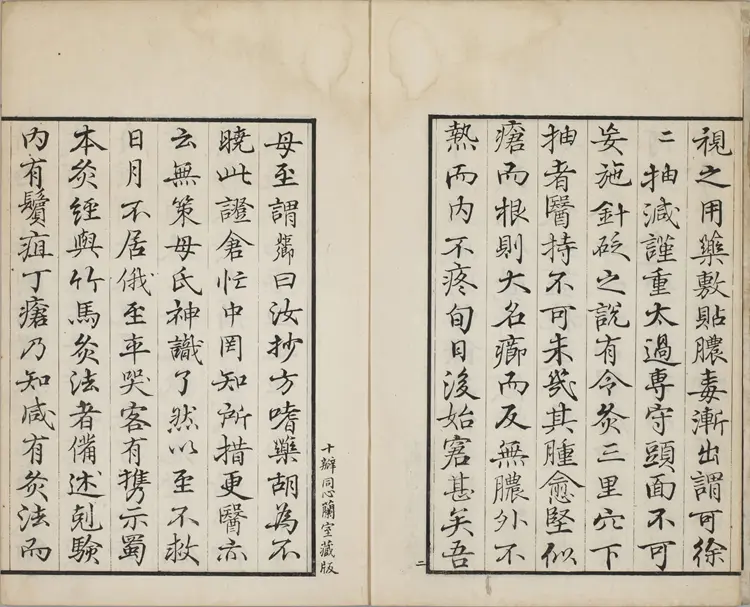 視之用藥敷貼膿毒漸出謂可徐
二抽減謹重太過專守頭面不可
妄施針砭之說有令灸三里穴下
抽者醫持不可未幾其腫愈堅似
瘡而根則大名癤而反無膿外不
熱而内不疼旬日後始窘甚矣吾
二
十瓣同心蘭室藏版
母至謂鄰曰汝抄方嗜藥胡為不
曉此證倉忙中罔知所措更醫亦
云無策母氏神識了然以至不救
日月不居俄至卒哭客有携示蜀
本灸經與竹馬灸法者備述尅驗
内有鬢疽丁瘡乃知咸有灸法而